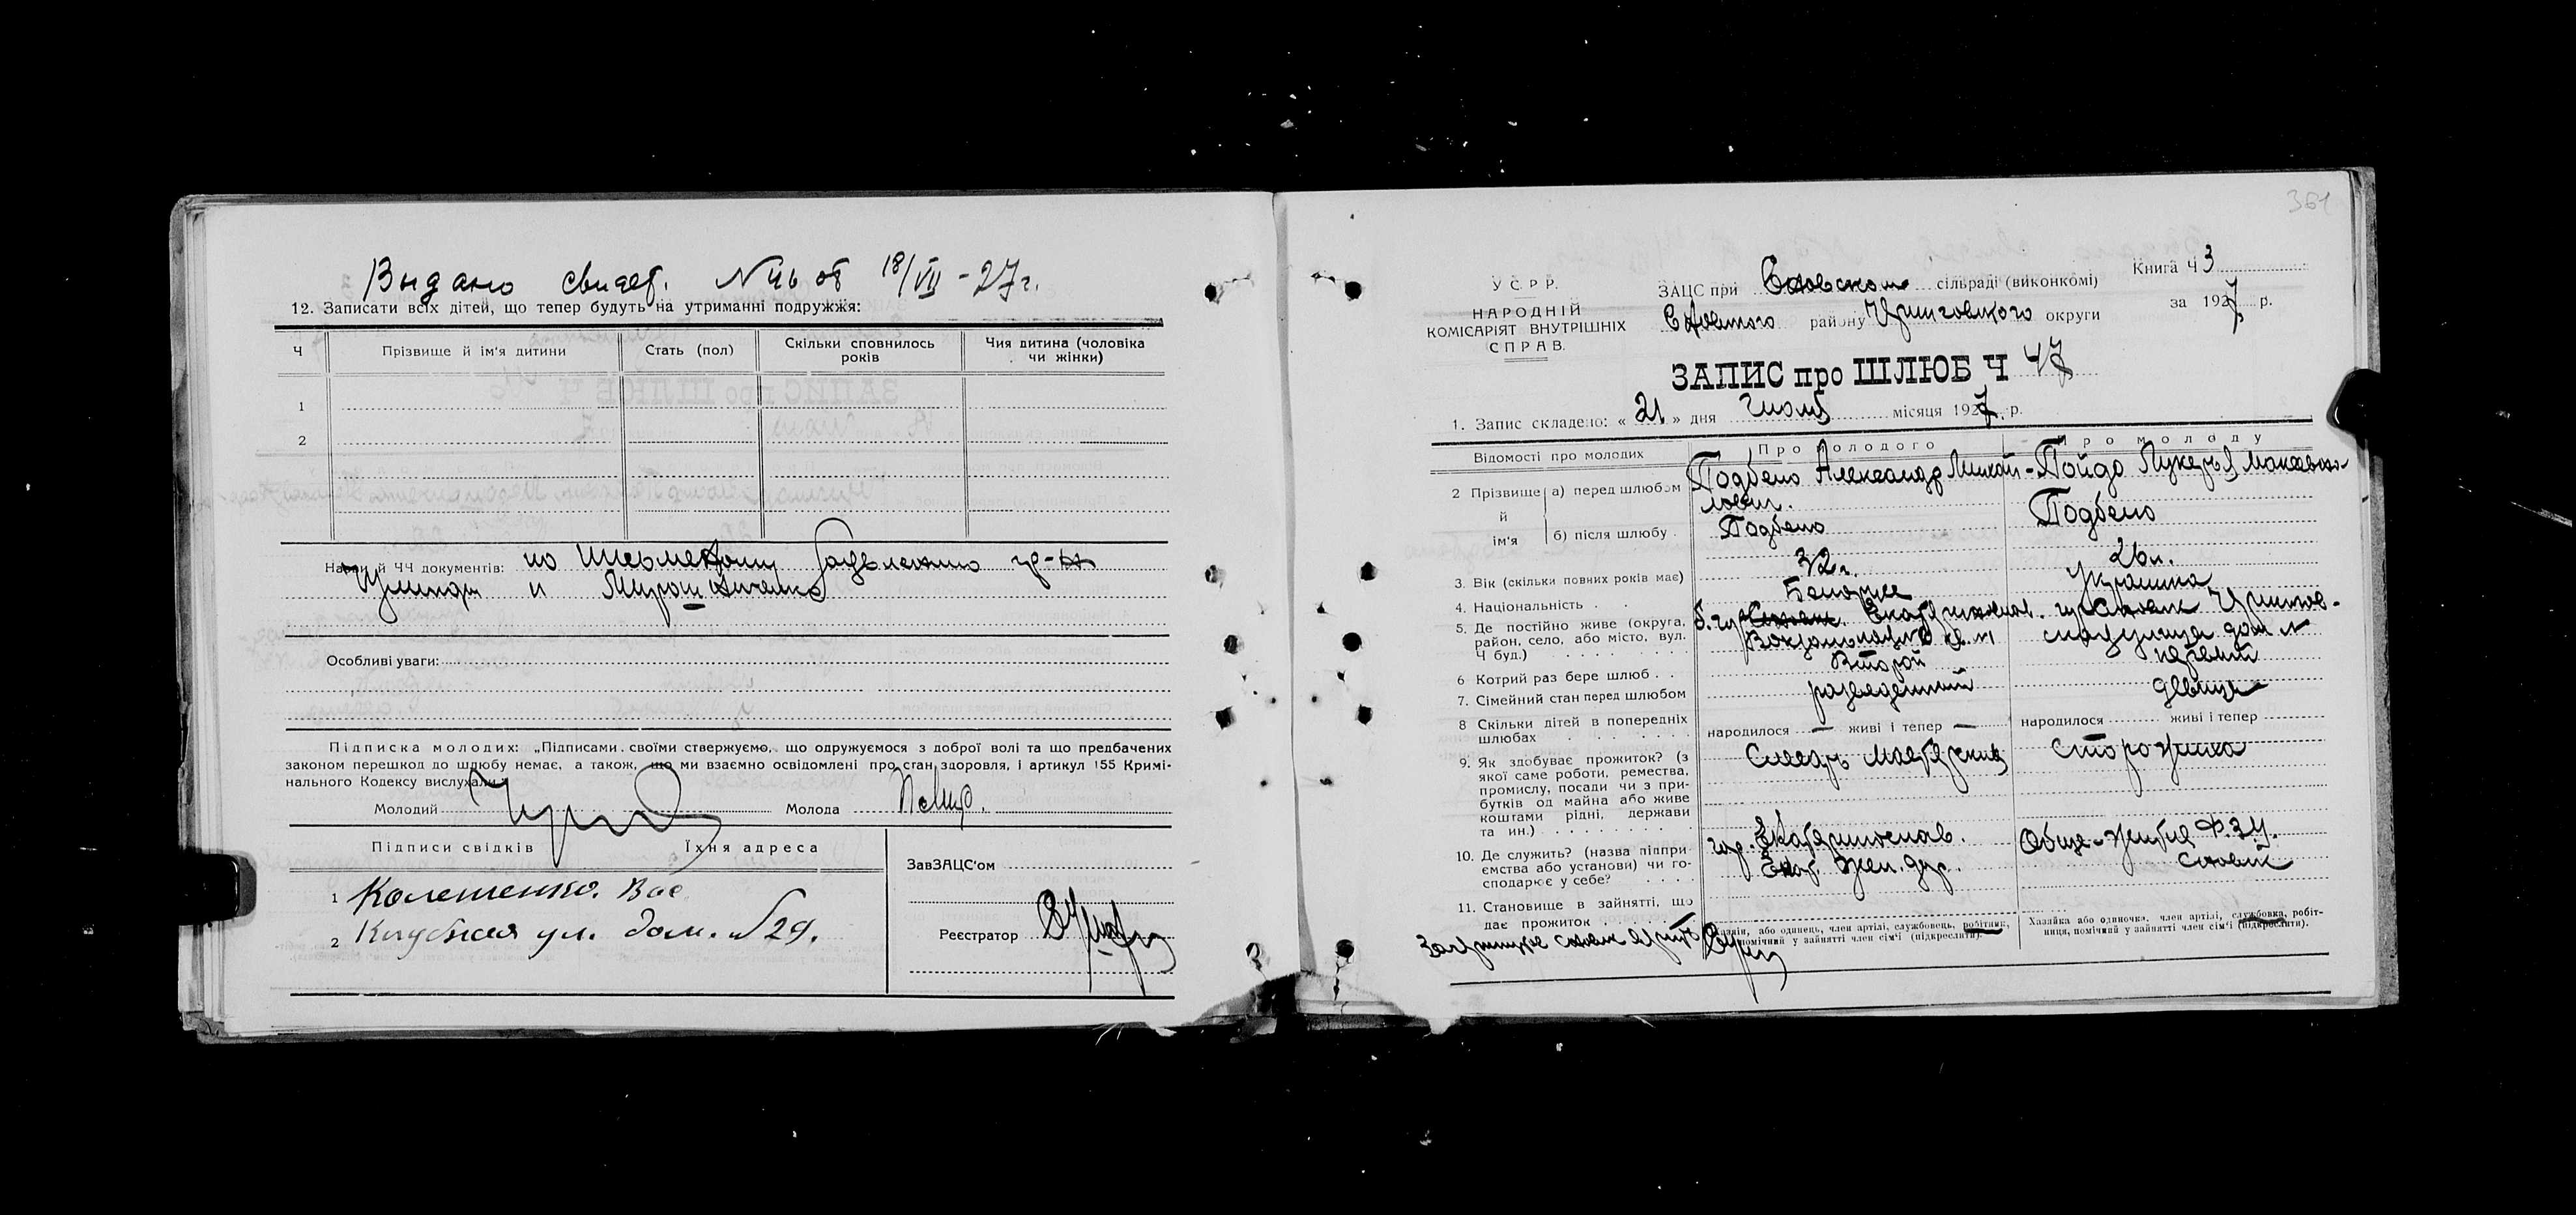 Выдано свидет. N 46 от 18/VII - 27 г.
12. Записати всіх дітей, що тепер будуть на утриманні подружжя:
Ч
Прізвище й ім'я дитини
Стать (пол)
Скільки сповнилось років
Чия дитина (чоловіка чи жінки)
1
2
Назви й ЧЧ документів: по заявлению гр-н
и
Особливі уваги:
Підписка молодих: „Підписами своїми ствержуємо, що одружуємося з доброї волі та що предбачених
законом перешкод до шлюбу немає, а також, що ми взаємно освідомлені про стан здоров'я, і артикул 155 Кримі-
нального Кодексу вислухали
Молодий
Молода
Підписи свідків
Їхня адреса
1
2 Клубная ул. дом. № 29.
ЗавЗАЦС'ом
Реєстратор
361
У С Р Р.
НАРОДНІЙ
КОМІСАРІЯТ ВНУТРІШНІХ
СПРАВ.
ЗАЦС при Сновском сільраді (виконкомі)
Сновского району Черниговского округи
Книга Ч 3
за 1927 р.
ЗАПИС про ШЛЮБ Ч 47
1. Запис складено: « 21 » дня Июля місяця 1927 р.
Відомості про молодих
Про молодого
Про молоду
2 Прізвище й ім'я
а) перед шлюбом
Александр Михай-
лович.
Лукерья
б) після шлюбу
3. Вік (скільки повних років має)
32 г.
26 л.
4. Національність
Белорус
Украинка
5. Де постійно живе (округа,
район, село, або місто, вул.
Ч буд.)
6 Котрий раз бере шлюб
Второй
первый
7. Сімейний стан перед шлюбом
разведенный
девица
8 Скільки дітей в попередніх
шлюбах
народилося — живі і тепер —
народилося живі і тепер
9. Як здобуває прожиток? (з
якої саме роботи, ремества,
промислу, посади чи з при-
бутків од майна або живе
коштами рідні, держави
та ин.)
Слесарь
Сторожиха
10. Де служить? (назва підпри-
ємства або установи) чи го-
сподарює у себе?
гор. Екатеринослав.
Екат. жел. дор.
Обще-житие Ф.З.У.
Сновск
11. Становище в зайнятті, що
дає прожиток
Хазяїн, або одинець, член артілі, службовець, робітник,
помічний у зайнятті член сім'ї (підкреслити).
Хазяйка або одиночка, член артілі, службовка, робіт-
ниця, помічний у зайнятті член сім'ї (підкреслити).